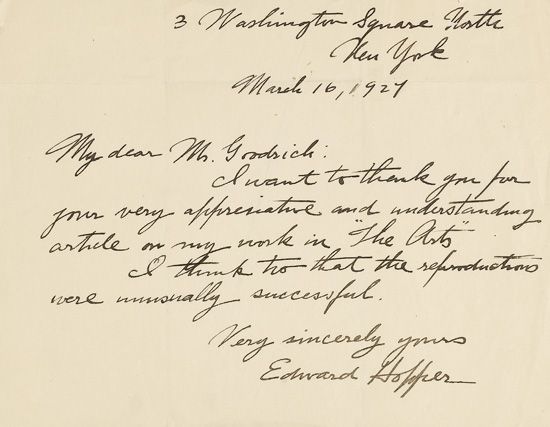 3 Washington Square North
New York
March 16, 1927
My dear Mr. Goodrich:
I want to thank you for
your very appreciative and understanding
article on my work in "The Arts"
I think too that the reproductions
were unusually successful.
Very sincerely yours
Edward Hopper